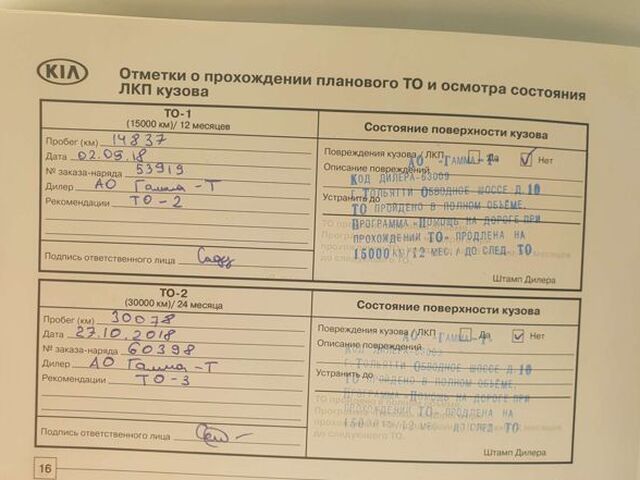 KIA
Отметки о прохождении планового ТО и осмотра состояния
ЛКП кузова
ТО-1
(15000 км)/ 12 месяцев
Состояние поверхности кузова
Пробег (км) 14837
Повреждения кузова / ЛКП Да Нет
Дата 02.05.18
Описание повреждений
АО "Гамма-Т"
№ заказа-наряда 53919
Код дилера-63009
Дилер АО Гамма-Т
г. Тольятти Обводное шоссе д.10
Рекомендации ТО-2
Устранить до
ТО пройдено в полном объёме.
Программа "Помощь на дороге при
прохождении ТО" продлена на
15000 км/12 мес. / до след. ТО
Подпись ответственного лица
Штамп Дилера
ТО-2
(30000 км)/ 24 месяца
Состояние поверхности кузова
Пробег (км) 30078
Повреждения кузова / ЛКП Да Нет
Дата 27.10.2018
Описание повреждений
АО "Гамма-Т"
№ заказа-наряда 60398
Код дилера-63009
Дилер АО Гамма-Т
г. Тольятти Обводное шоссе д.10
Рекомендации ТО-3
Устранить до
ТО пройдено в полном объёме.
Программа "Помощь на дороге при
прохождении ТО" продлена на
15000 км/12 мес. / до след. ТО
до следующего ТО.
Подпись ответственного лица
Штамп Дилера
16